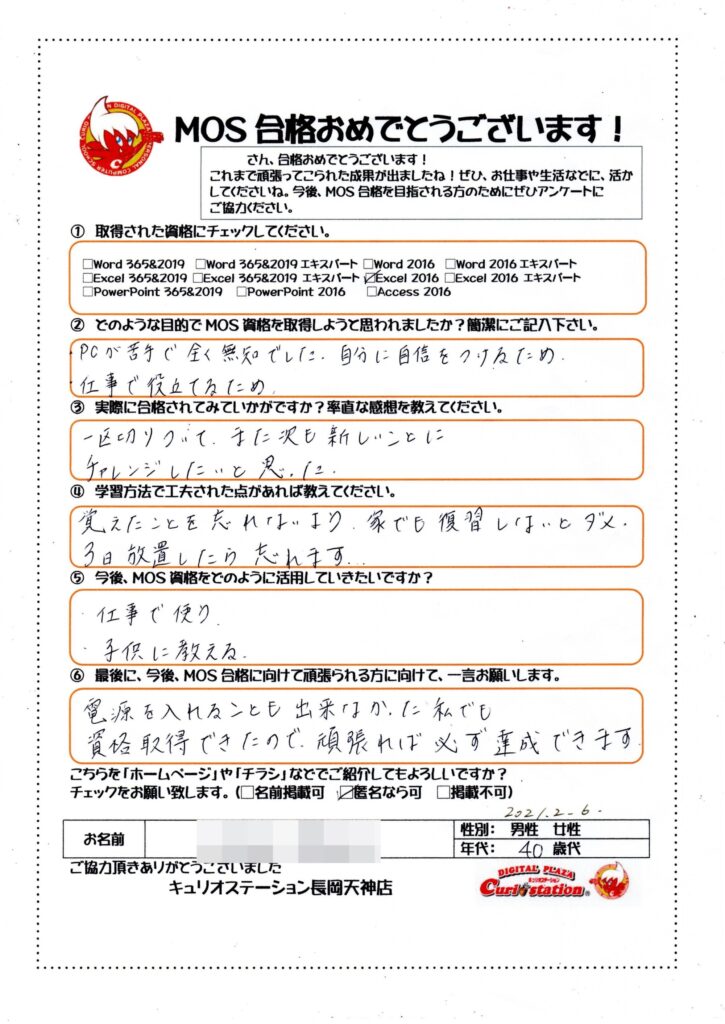 MOS 合格おめでとうございます！
さん、合格おめでとうございます！
これまで頑張ってこられた成果が出ましたね！ぜひ、お仕事や生活などに、活か
してくださいね。今後、MOS 合格を目指される方のためにぜひアンケートに
ご協力ください。
① 取得された資格にチェックしてください。
□Word 365&2019 □Word 365&2019 エキスパート □Word 2016 □Word 2016 エキスパート
□Excel 365&2019 □Excel 365&2019 エキスパート ☑Excel 2016 □Excel 2016 エキスパート
□PowerPoint 365&2019 □PowerPoint 2016 □Access 2016
② どのような目的で MOS 資格を取得しようと思われましたか？簡潔にご記入下さい。
・PCが苦手で全く無知でした。自分に自信をつけるため。
・仕事で役立てるため。
③ 実際に合格されてみていかがですか？率直な感想を教えてください。
一区切りついて、また次も新しいことに
チャレンジしたいと思った。
④ 学習方法で工夫された点があれば教えてください。
覚えたことを忘れないより、家でも復習しないとダメ。
3日放置したら忘れます...
⑤ 今後、MOS 資格をどのように活用していきたいですか？
・仕事で使り
・子供に教える。
⑥ 最後に、今後、MOS 合格に向けて頑張られる方に向けて、一言お願いします。
電源を入れることも出来なかった私でも
資格取得できたので、頑張れば必ず達成できます
こちらを「ホームページ」や「チラシ」などでご紹介してもよろしいですか？
チェックをお願い致します。(□名前掲載可 ☑匿名なら可 □掲載不可)
2021.2-6.
お名前
性別： 男性 女性
年代： 40 歳代
ご協力頂きありがとうございました
キュリオステーション長岡天神店
DIGITAL PLAZA
キュリオステーション
Curiostation